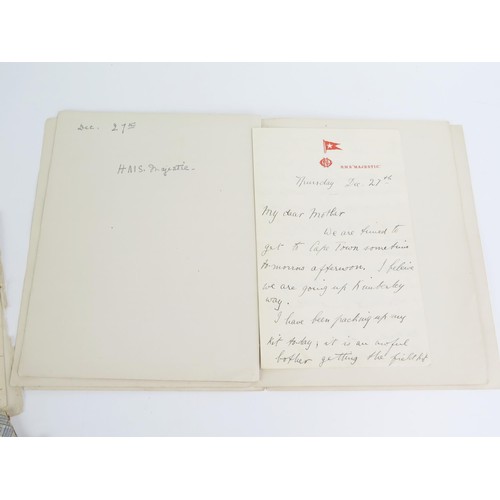 Dec. 27th
HMS. Majestic.
R.M.S. "MAJESTIC."
Thursday Dec 27th
My dear Mother
We are timed to
get to Cape Town sometime
tomorrow afternoon. I believe
we are going up Kimberley
way.
I have been packing up my
kit today; it is an awful
bother getting the field kit